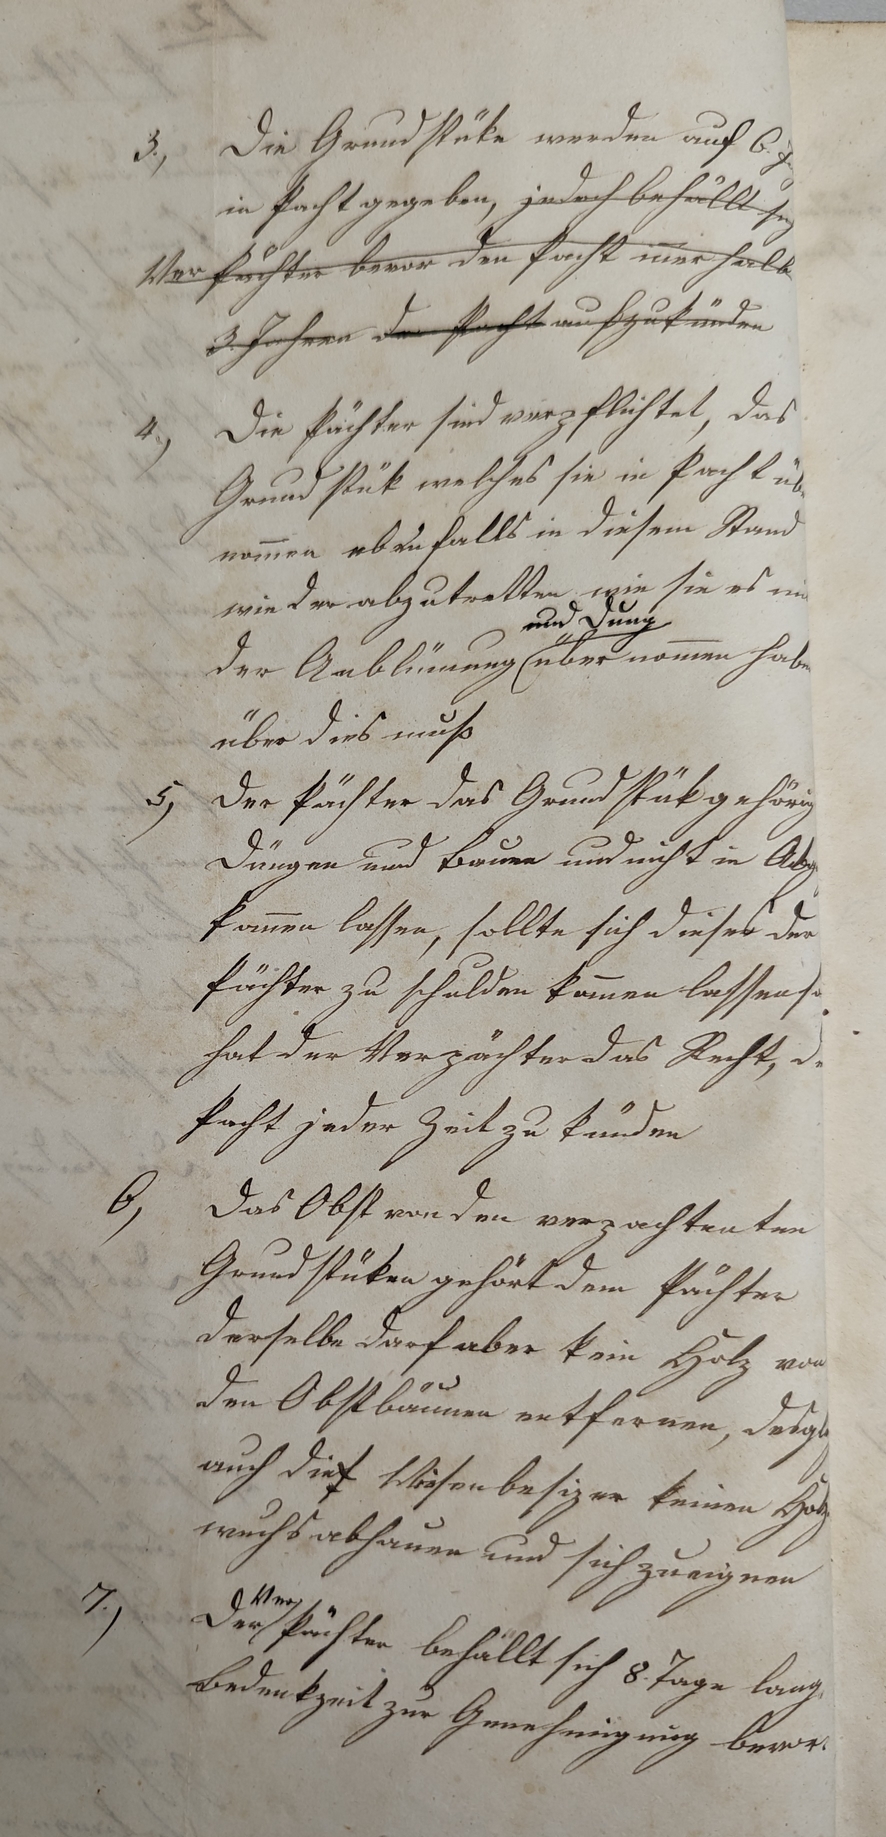 3., Die Grundstüke werden auf 6. J
in Pacht gegeben, jedoch behällt sich
Verpächter bevor den Pacht innerhalb
3. Jahren der Pacht aufzukünden
4.) Die Pächter sind verpflichtet, das
Grundstük welches sie in Pacht üb
nom̄en ebenfalls in diesem Stand
wieder abzutretten wie sie es mi
und Dung
der Anblümung (übernom̄en habe
über dies muß
5) Der Pächter das Grundstük gehörig
Düngen und bauen und nicht in Abg
kom̄en lassen, sollte sich dieses der
Pächter zu schulden kom̄en lassen so
hat der Verpächter das Recht, de
Pacht jeder Zeit zu künden
6, Das Obst von den verpachteten
Grundstüken gehört dem Pächter
derselbe darf aber kein Holz von
den Obstbäumen entfernen, desgl
auch die Wiesenbesizer keinen Holz
wuchs abhauen und sich zueignen
Ver
7.) Der Pächter behällt sich 8. Tage lang
Bedenkzeit zur Genehmigung bevor.